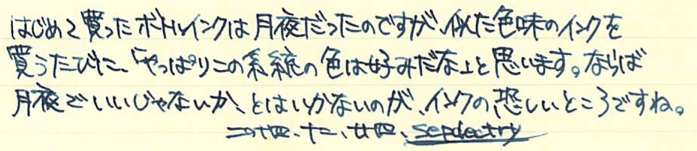 はじめて買ったボトルインクは月夜だったのですが、似た色味のインクを
買うたびに、「やっぱりこの系統の色は好みだな」と思います。ならば
月夜でいいじゃないか、とはいかないのが、インクの恐しいところですね。
二〇一四、十二、廿四、